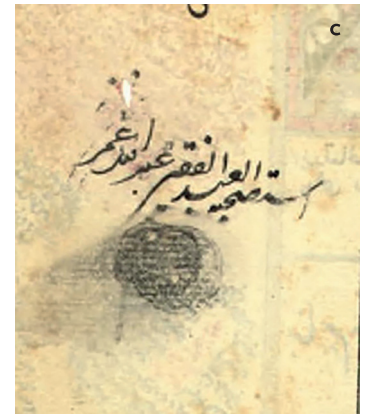 C
استصحبه العبد الفقير عبد الله عمر